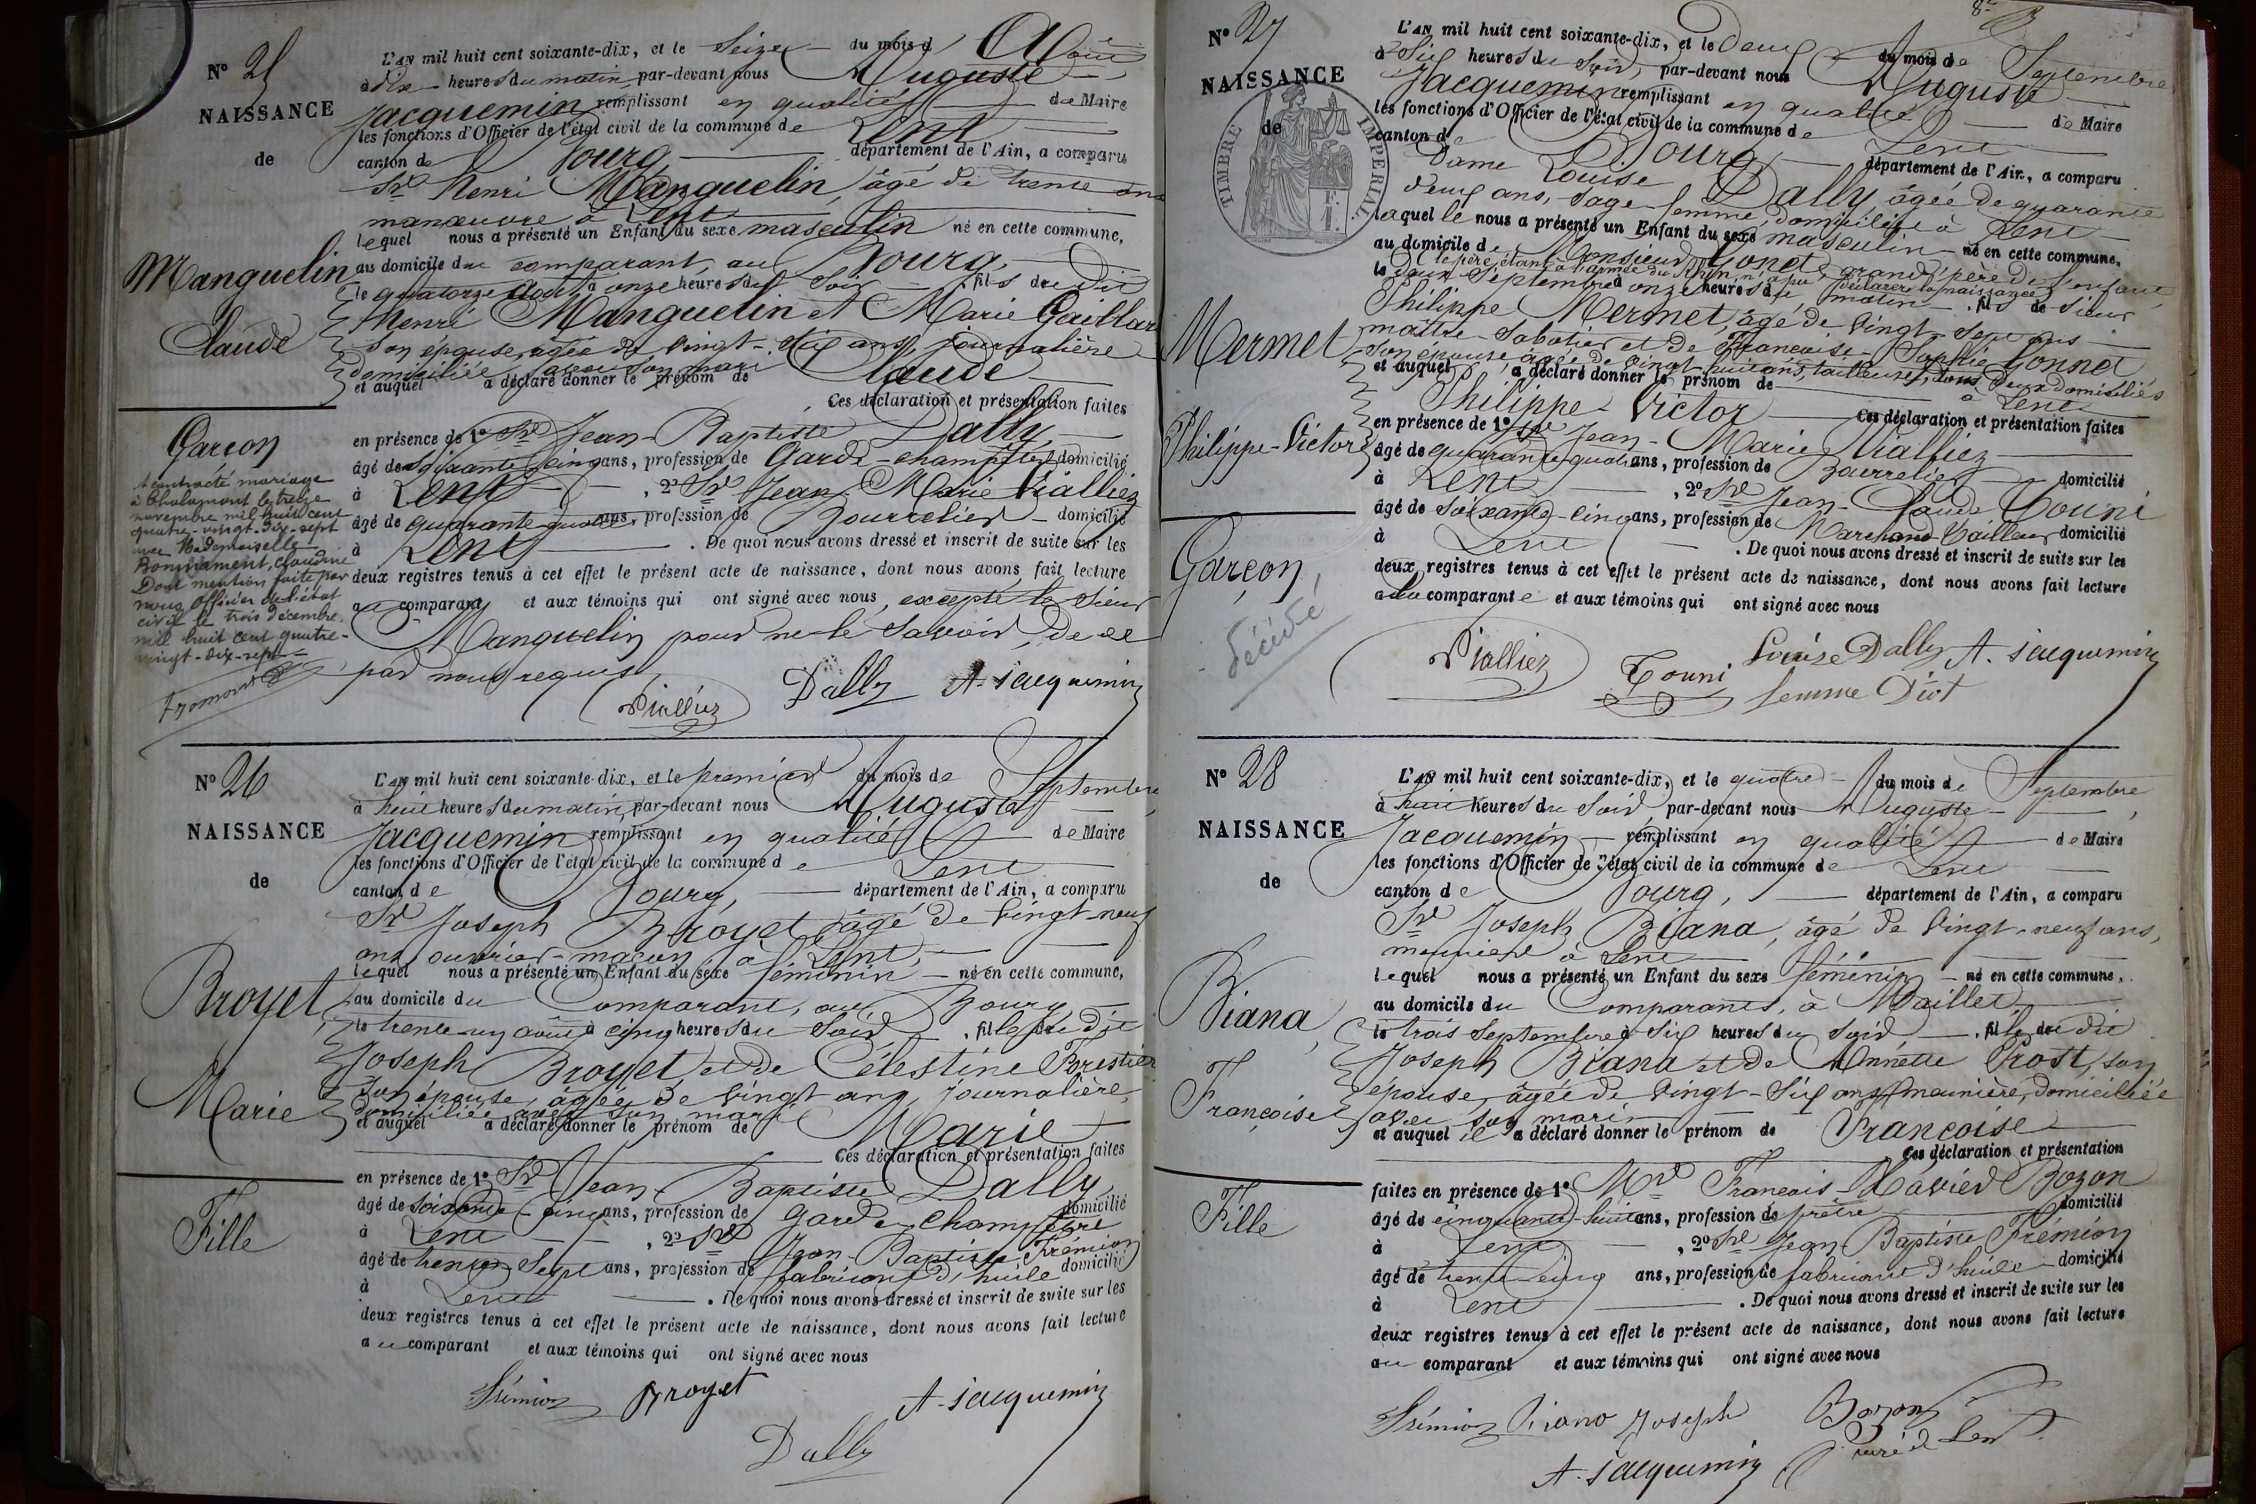 N° 25
NAISSANCE
de
Manguelin
Claude
Garçon
A contracté mariage
à Chalamont le treize
novembre mil huit cent
quatre-vingt-dix-sept
avec Mademoiselle
Bonnament, Claudine
Dont mention faite par
nous officier de l'état
civil le trois décembre
mil huit cent quatre-
vingt-dix-sept
L'AN mil huit cent soixante-dix, et le Seize du mois d'Août
à dix heures du matin, par-devant nous Auguste
Jacquemin remplissant en qualité de Maire
les fonctions d'Officier de l'état civil de la commune de Lent
canton de Bourg, département de l'Ain, a comparu
Sr Henri Manguelin, âgé de trente ans
manœuvre à Lent
lequel nous a présenté un Enfant du sexe masculin né en cette commune,
au domicile du comparant, au Bourg,
le quatorze Août à onze heures du soir, fils du dit
Henri Manguelin et Marie Gaillard
son épouse, agée de vingt-six ans, journalière
domiciliée avec son mari
et auquel a déclaré donner le prénom de Claude
Ces déclaration et présentation faites
en présence de 1° Sr Jean-Baptiste Dally,
âgé de soixante cinq ans, profession de Garde-champêtre domicilié
à Lent, 2° Sr Jean-Marie Vialliez
âgé de quarante quatre ans, profession de Bourrelier domicilié
à Lent. De quoi nous avons dressé et inscrit de suite sur les
deux registres tenus à cet effet le présent acte de naissance, dont nous avons fait lecture
au comparant et aux témoins qui ont signé avec nous, excepté le Sieur
Manguelin pour ne le savoir, de ce
par nous requis
Vialliez Dally A. Jacquemin
N° 26
NAISSANCE
de
Broyet
Marie
Fille
L'AN mil huit cent soixante-dix, et le premier du mois de Septembre
à huit heures du matin, par-devant nous Auguste
Jacquemin remplissant en qualité de Maire
les fonctions d'Officier de l'état civil de la commune de Lent
canton de Bourg, département de l'Ain, a comparu
Sr Joseph Broyet âgé de vingt-neuf
ans, ouvrier-maçon, à Lent,
lequel nous a présenté un Enfant du sexe féminin né en cette commune,
au domicile du Comparant, au Bourg
le trente-un août à cinq heures du soir, fille du dit
Joseph Broyet et de Célestine Brestier
son épouse, âgée de vingt ans, journalière,
domiciliée avec son mari
et auquel a déclaré donner le prénom de Marie
Ces déclaration et présentation faites
en présence de 1° Sr Jean-Baptiste Dally
âgé de soixante-cinq ans, profession de garde champêtre domicilié
à Lent, 2° Sr Jean-Baptiste Frémion
âgé de trente-sept ans, profession de fabricant d'huile domicilié
à Lent. De quoi nous avons dressé et inscrit de suite sur les
deux registres tenus à cet effet le présent acte de naissance, dont nous avons fait lecture
au comparant et aux témoins qui ont signé avec nous
Frémion Broyet A. Jacquemin
Dally
N° 27
NAISSANCE
de
TIMBRE IMPERIAL
Mermet
Philippe-Victor
Garçon,
décédé
L'AN mil huit cent soixante-dix, et le deux du mois de Septembre
à Six heures du Soir, par-devant nous Auguste
Jacquemin remplissant en qualité de Maire
les fonctions d'Officier de l'état civil de la commune de Lent
canton de Bourg, département de l'Ain, a comparu
Dame Louise Dally, âgée de quarante
deux ans, sage-femme, domiciliée à Lent
laquelle nous a présenté un Enfant du sexe masculin né en cette commune,
au domicile de Monsieur Gonet, grand père de l'enfant
le père étant à l'armée du Rhin, n'a pu déclarer la naissance
le deux Septembre à onze heures du matin, fils de Sieur
Philippe Mermet, âgé de vingt-sept ans
maître-sabotier et de Françoise-Sophie Gonnet
son épouse, âgée de vingt huit ans, tailleuse, tous deux domiciliés à Lent
et auquel a déclaré donner le prénom de
Philippe-Victor Ces déclaration et présentation faites
en présence de 1° Sr Jean-Marie Vialliez
âgé de quarante quatre ans, profession de Bourrelier domicilié
à Lent, 2° Sr Jean-Claude Touni
âgé de soixante-cinq ans, profession de Marchand Tailleur domicilié
à Lent. De quoi nous avons dressé et inscrit de suite sur les
deux registres tenus à cet effet le présent acte de naissance, dont nous avons fait lecture
à la comparante et aux témoins qui ont signé avec nous
Vialliez Touni Louise Dally A. Jacquemin
femme Diot
N° 28
NAISSANCE
de
Biana,
Françoise
Fille
L'AN mil huit cent soixante-dix, et le quatre du mois de Septembre
à huit heures du Soir par-devant nous Auguste
Jacquemin remplissant en qualité de Maire
les fonctions d'Officier de l'état civil de la commune de Lent
canton de Bourg, département de l'Ain, a comparu
Sr Joseph Biana, âgé de vingt-neuf ans,
meunier à Lent
lequel nous a présenté un Enfant du sexe féminin né en cette commune,
au domicile du Comparant, à Maillet,
le trois Septembre à six heures du soir, fille du dit
Joseph Biana et de Annette Prost, son
épouse, âgée de vingt-six ans, meunière, domiciliée
avec son mari
et auquel il a déclaré donner le prénom de Françoise
Ces déclaration et présentation
faites en présence de 1° Mr François-Xavier Bozon
âgé de cinquante-huit ans, profession de prêtre domicilié
à Lent, 2° Sr Jean Baptiste Frémion
âgé de trente-cinq ans, profession de fabricant d'huile domicilié
à Lent. De quoi nous avons dressé et inscrit de suite sur les
deux registres tenus à cet effet le présent acte de naissance, dont nous avons fait lecture
au comparant et aux témoins qui ont signé avec nous
Frémion Biana Joseph Bozon
curé de Lent
A. Jacquemin